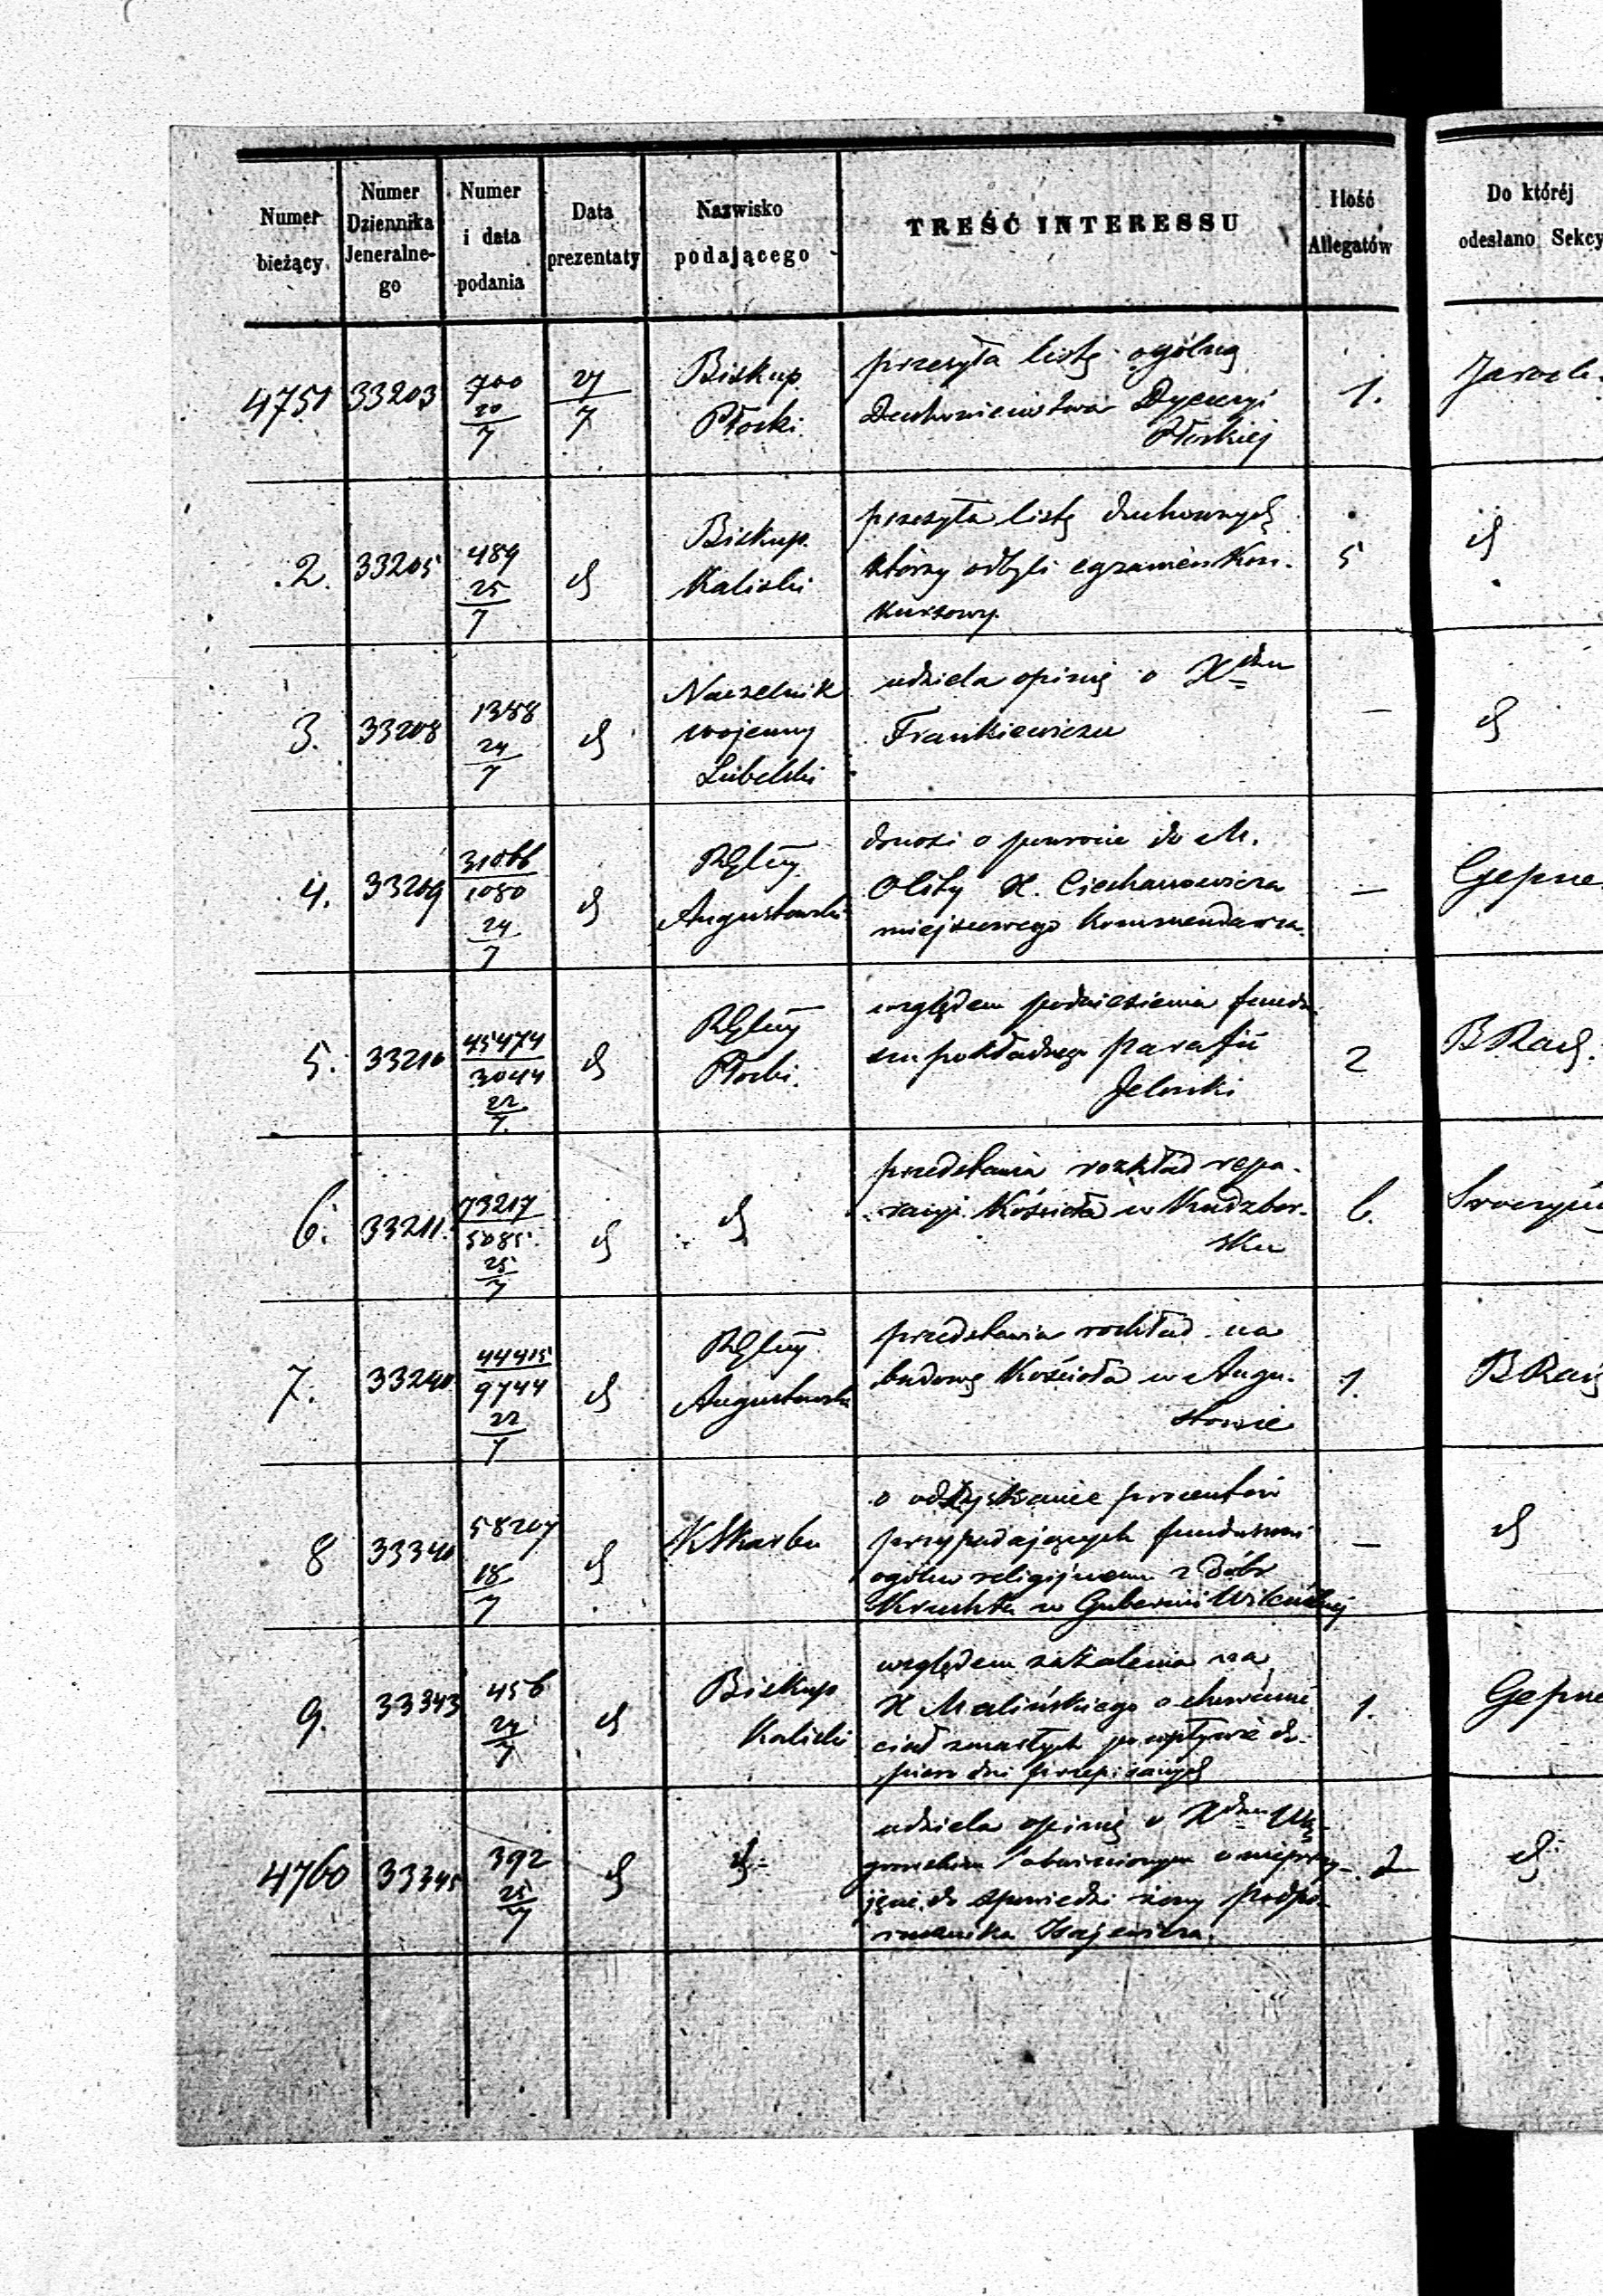 Numer bieżący.
Numer Dziennika Jeneralne-go
Numer i data podania
Data prezentaty
Nazwisko podającego
TREŚĆ INTERESSU
Ilość Allegatów
Do któréj odesłano Sekcy
4751 33203 700 20/7 27/7 Biskup Płocki.
przesyła listę ogólną
Duchowieństwa Dyecezyi
Płockiej
1.
2. 33205 489 25/7 d Biskup Kaliski
przesyła listę duchownych
którzy odbyli egzamin kon-
kursowy.
5 d
3. 33208 1388 24/7 d Naczelnik wojenny Lubelski
udziela opinię o Xdzu
Frankiewiczu
— d
4. 33209 31066/1080 24/7 d Augustowski
donosi o powrocie do M.
Olity X. Ciechanowicza
miejscowego Kommendarza.
— Gepne
5. 33210 45474/3044 22/7. d Płocki.
względem podniesienia fundu
szu pokładnego parafii
2
6. 33211. 73217/5085. 25/7 d d
przedstawia rozkład repa-
racyi Kościoła w Kudzbor-
sku
6.
7. 33240 44415/9744 22/7 d Augustowski
przedstawia rozkład na
budowę Kościoła w Augu-
stowie
1.
8 33340 58207 18/7 d K Skarbu
o odzyskanie procentów
przypadających funduszowi
ogólno religijnemu z dóbr
w Gubernii Wileńskiej
— d
9. 33343 456 24/7 d Biskup Kaliski
względem zażalenia na
X Malińskiego o chowanie
ciał zmarłych po upływie do-
piero dni przepisanych
1. Gepne
4760 33345 392 25/7 d d
udziela opinię o Xdzu
obwinionym o nieprzy-
jęcie do spowiedzi żony podpo-
rucznika
2 d